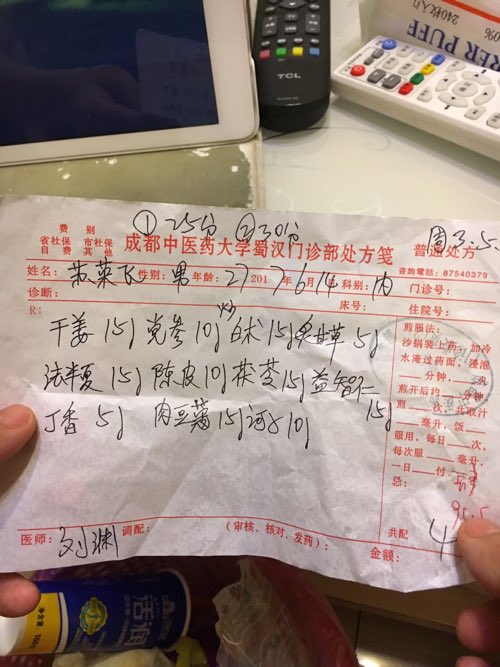 TCL
240枚入り
RER PUFF
① 25分 ② 30分
周3.5.
费 别
省社保 市社保
自费 其他
成都中医药大学蜀汉门诊部处方笺
普通处方
咨询電話:87540379
姓名: 性别:男 年龄:27 2017年6月14日 科别:内 门诊号:
诊断: 床号: 住院号:
R:
炒
干姜 15g 党参 10g 白术 15g 炙甘草 5g
法半夏 15g 陈皮 10g 茯苓 15g 益智仁 15g
丁香 5g 肉豆蔻 15g 诃子 10g
煎服法:
沙锅装上药;加冷
水淹过药面,浸泡
分钟, 火
煎开后约 分钟,
煎 次,共取汁
毫升,饭
服用,每日 次,
每次服 毫升,
一日 付
忌:
医师:刘渊 调配: (审核、核对、发药): 共配 4
金额:
活油
100%